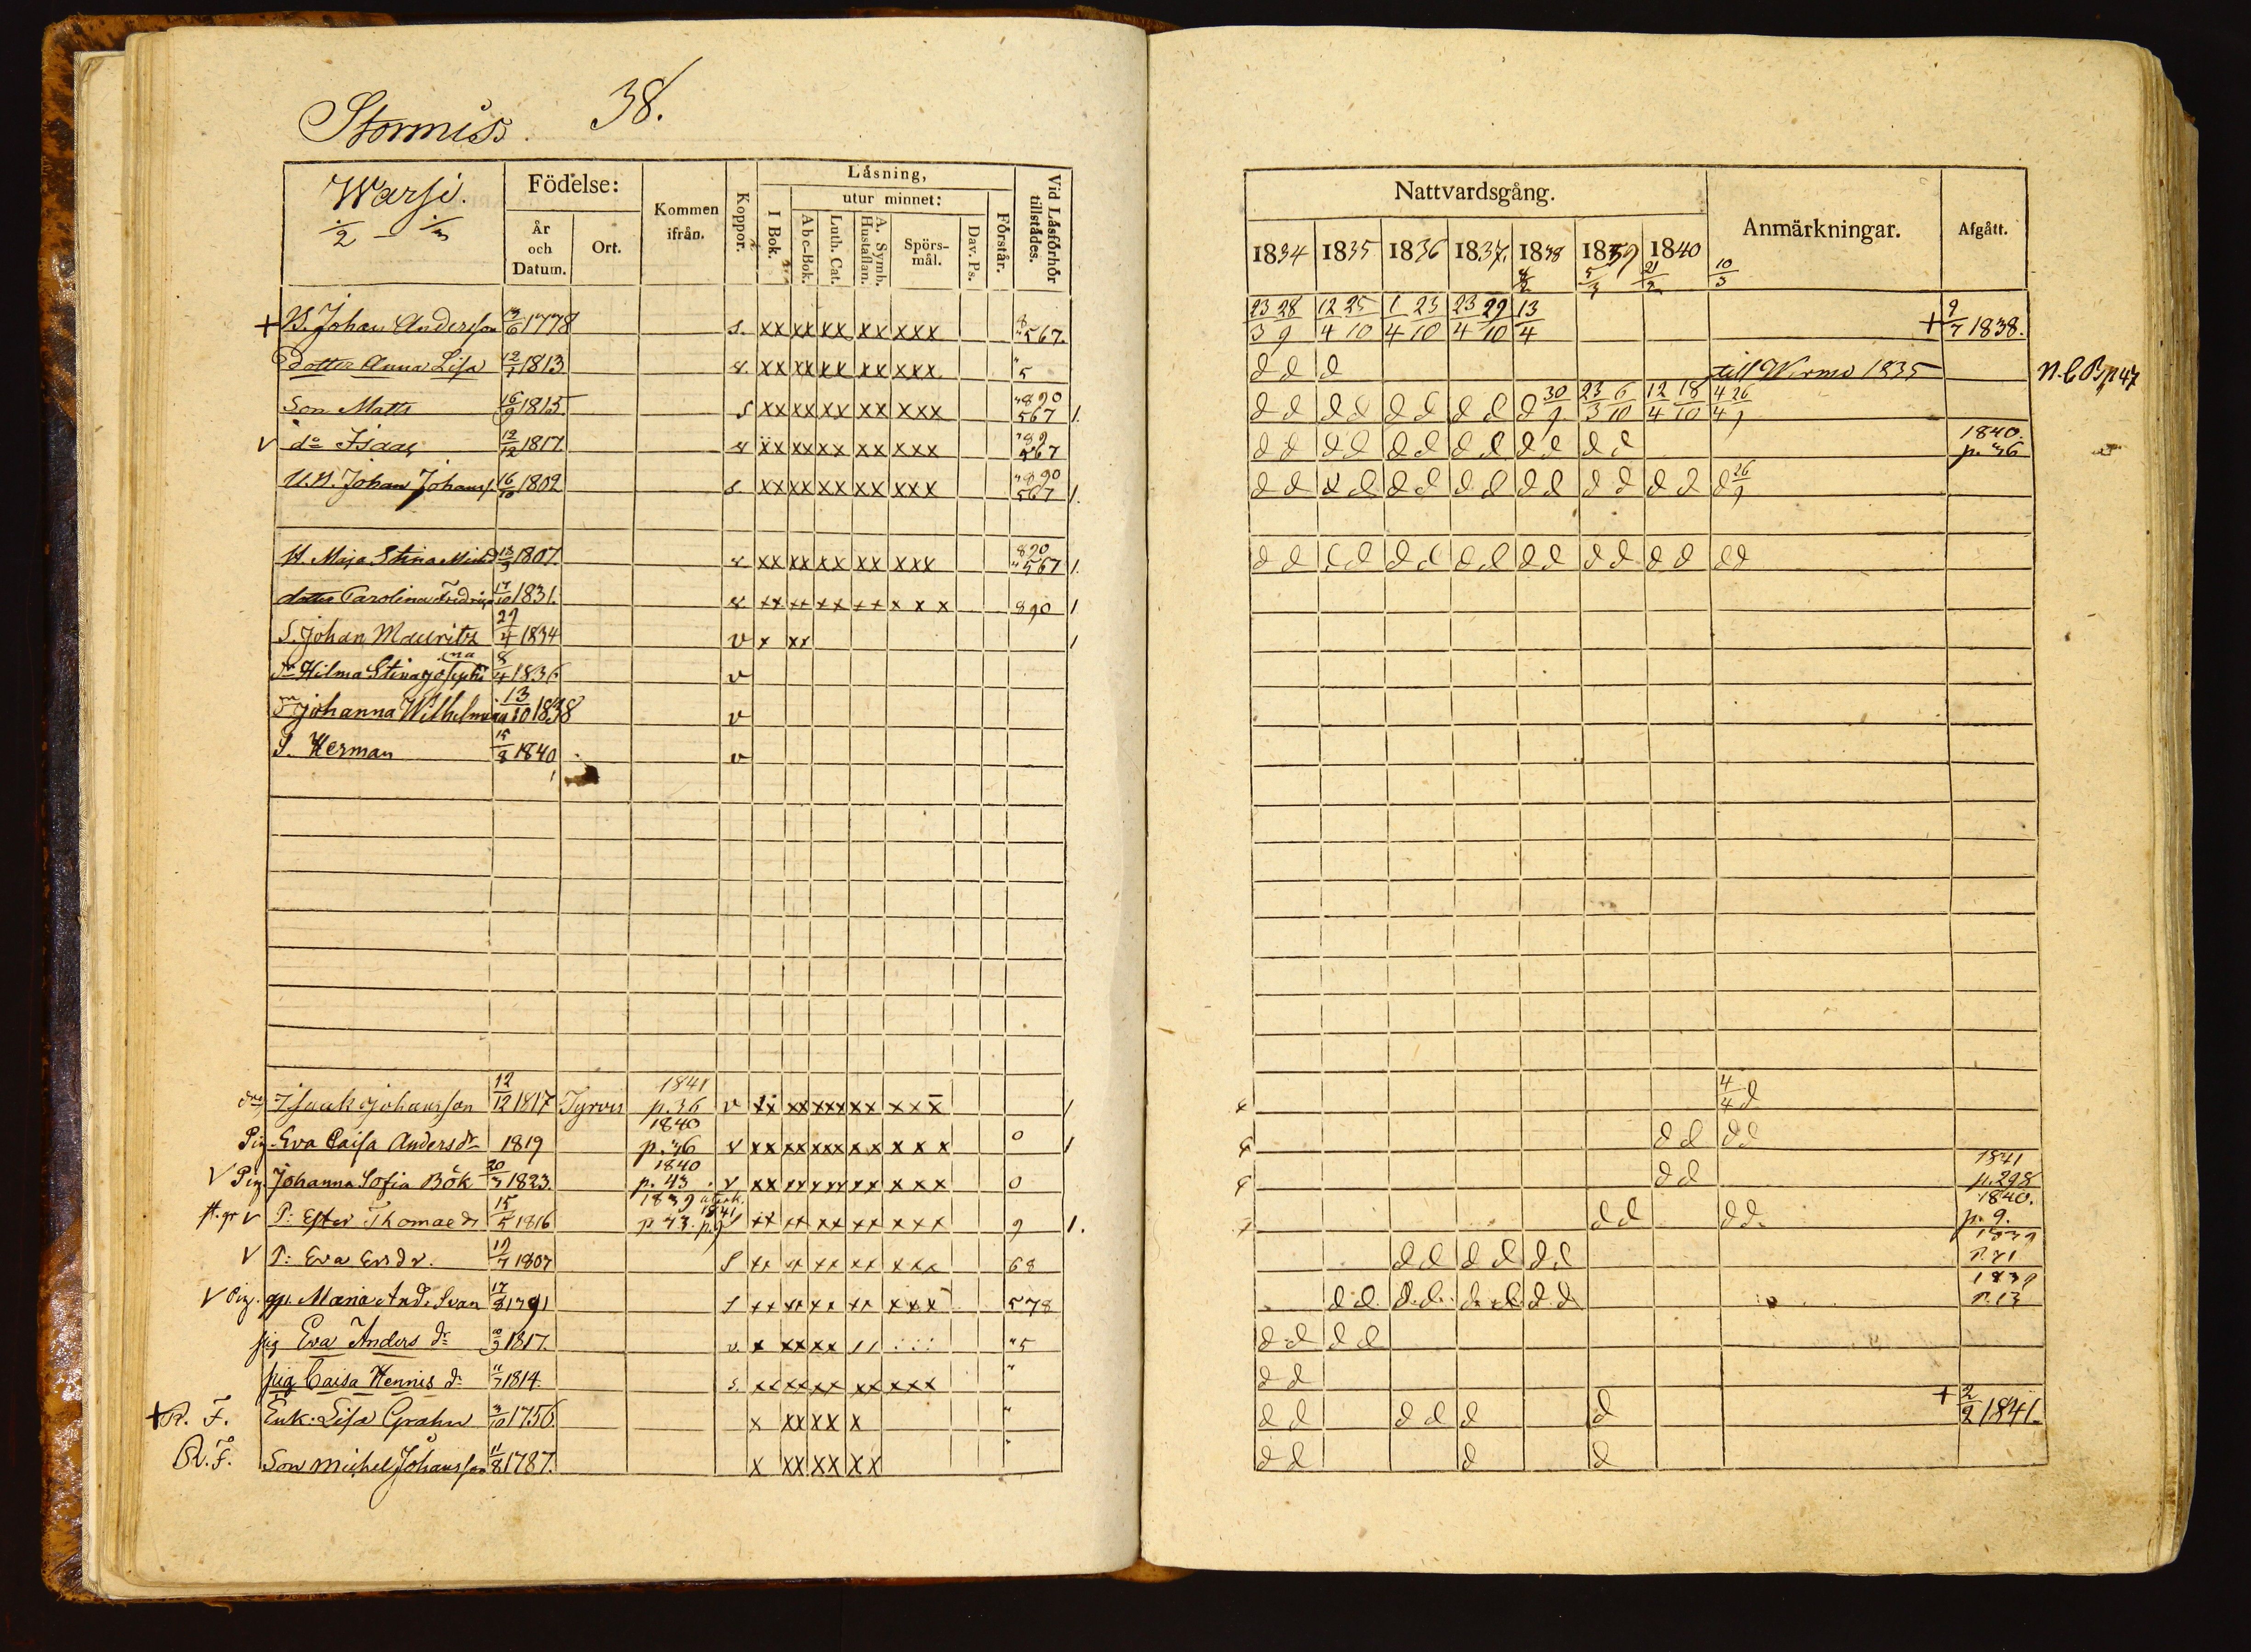 38.
Stormis.
Warsi.
1/2 - 1/3
Födelse:
År och Datum.
Ort.
Kommen ifrån.
Koppor.
Låsning,
I Bok.
utur minnet:
Abc-Bok.
Luth. Cat.
A. Symb. Hustaflan.
Spörsmål.
Dav. Ps.
Förstår.
Vid Låsförhör tillstådes.
+ B. Johan Andersson 1778 s. xx xx xx xx xxx 8 567.
Dotter Anna Lisa 1813 v. xx xx xx xx xxx " 5
Son Matts 16/9 1815 s xx xx xx xx xxx "890 567 1.
v do Isaac 12/12 1817 v xx xx xx xx xxx "89 567
U.B. Johan Johanss 16/10 1802 s. xx xx xx xx xxx "890 567 1.
H. Maja Stina 13/3 1807 v xx xx xx xx xxx 890 "567 1.
dotter Carolina Fredrica 17/10 1831. v xx xx xx xx x x x 890 1
S. Johan Mauritz 29/4 1834 v x xx 1
Dr Hilma Stina Josephina 8/4 1836 v
Dr Johanna Wilhelmina 13/10 1838 v
S. Herman 15/8 1840 v
drg Isaak Johansson 12/12 1817 Tyrvis 1841 p.36 v xx xx xxx xx xxx 1
Pig Eva Caisa Andersdr 1819 1840 p.36 v xx xx xxx xx x x x 0 1
V Pig. Johanna Sofia Bök 20/3 1823. 1840 p. 43 v xx xx xxx xx xxx 0
v P: Ester Thomaed 15/5 1816 1839 p 43. återk. 1841 p.9 xx xx xx xx xxx 9 1.
V P: Eva Ersdr. 19/7 1807 s xx xx xx xx xxx 68
V Pig. gp. Maria And. Svan 17/2 1791 s xx xx xx xx xxx 578
pig Eva Anders dr 1817. v. x xx xx 11 ::: "5
pig Caisa Hennis dr 11/7 1814. s. xx xx xx xx xxx "
+ R. F. Enk: Lisa Grahn 3/10 1756 x xx xx x "
R. F. Son Michel Johansson 11/8 1787. x xx xx xx "
Nattvardsgång.
Anmärkningar.
Afgått.
1834 1835 1836 1837. 1838 1839 1840
5/3 21/2 10/3
23/3 28/9 12/4 25/10 1/4 23/10 23/4 29/10 13/4 + 9/7 1838.
d d d till Wirmo 1835 N.C.B. p 47
d d d d d d d d d 30/9 23/3 6/10 12/4 18/10 4/4 26/9
d d d d d d d d d d d d 1840. p. 36
d d d d d d d d d d d d d d d 26/9
d d d d d d d d d d d d d d d d
4/4 d
d d d d
d d 1841 p.298
d d d d. 1840. p. 9.
d d d d d d 1839 P.71
d d. d. d. d. d. d. d. 1839 P.13
d d d d
d d
d d d d d d + 2/2 1841.
d d d d